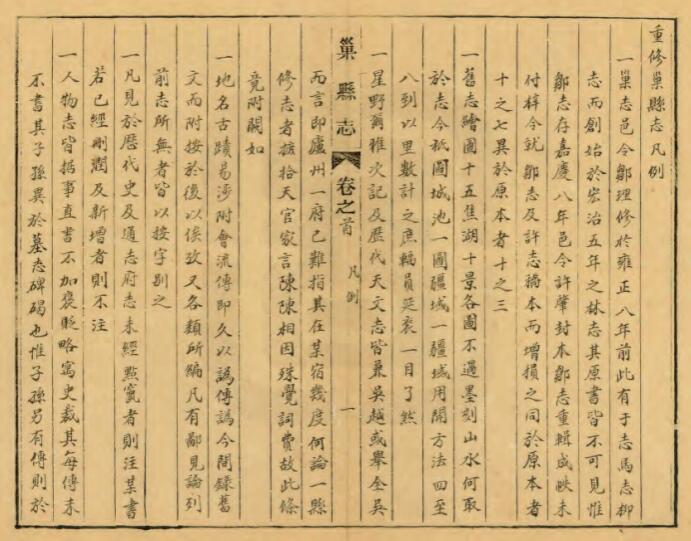 重修巢縣志凡例
一巢志邑令鄒理修於雍正八年前此有于志馬志柳
志而創始於宏治五年之林志其原書皆不可見惟
鄒志存嘉慶八年邑令許肇封本鄒志重輯成帙未
付梓今就鄒志及許志稿本而增損之同於原本者
十之七異於原本者十之三
一舊志繪圖十五焦湖十景各圖不過墨刻山水何取
於志今祇圖城池一圖疆域一疆域用開方法四至
八到以里數計之庶輻員延袤一目了然
一星野爾雅次記及歷代天文志皆兼吳越或舉全吳
巢縣志
卷之首
凡例
一
而言即廬州一府已難指其在某宿幾度何論一縣
修志者摭拾天官家言陳陳相因殊覺詞費故此條
竟附闕如
一地名古蹟易涉附會流傳即久以譌傳譌今間錄舊
文而附按於後以俟攷又各類所編凡有鄙見論列
前志所無者皆以按字別之
一凡見於歷代史及通志府志未經點竄者則注某書
若已經刪潤及新增者則不注
一人物志皆據事直書不加褒貶略寓史裁其每傳末
不書其子孫異於墓志碑碣也惟子孫另有傳則於